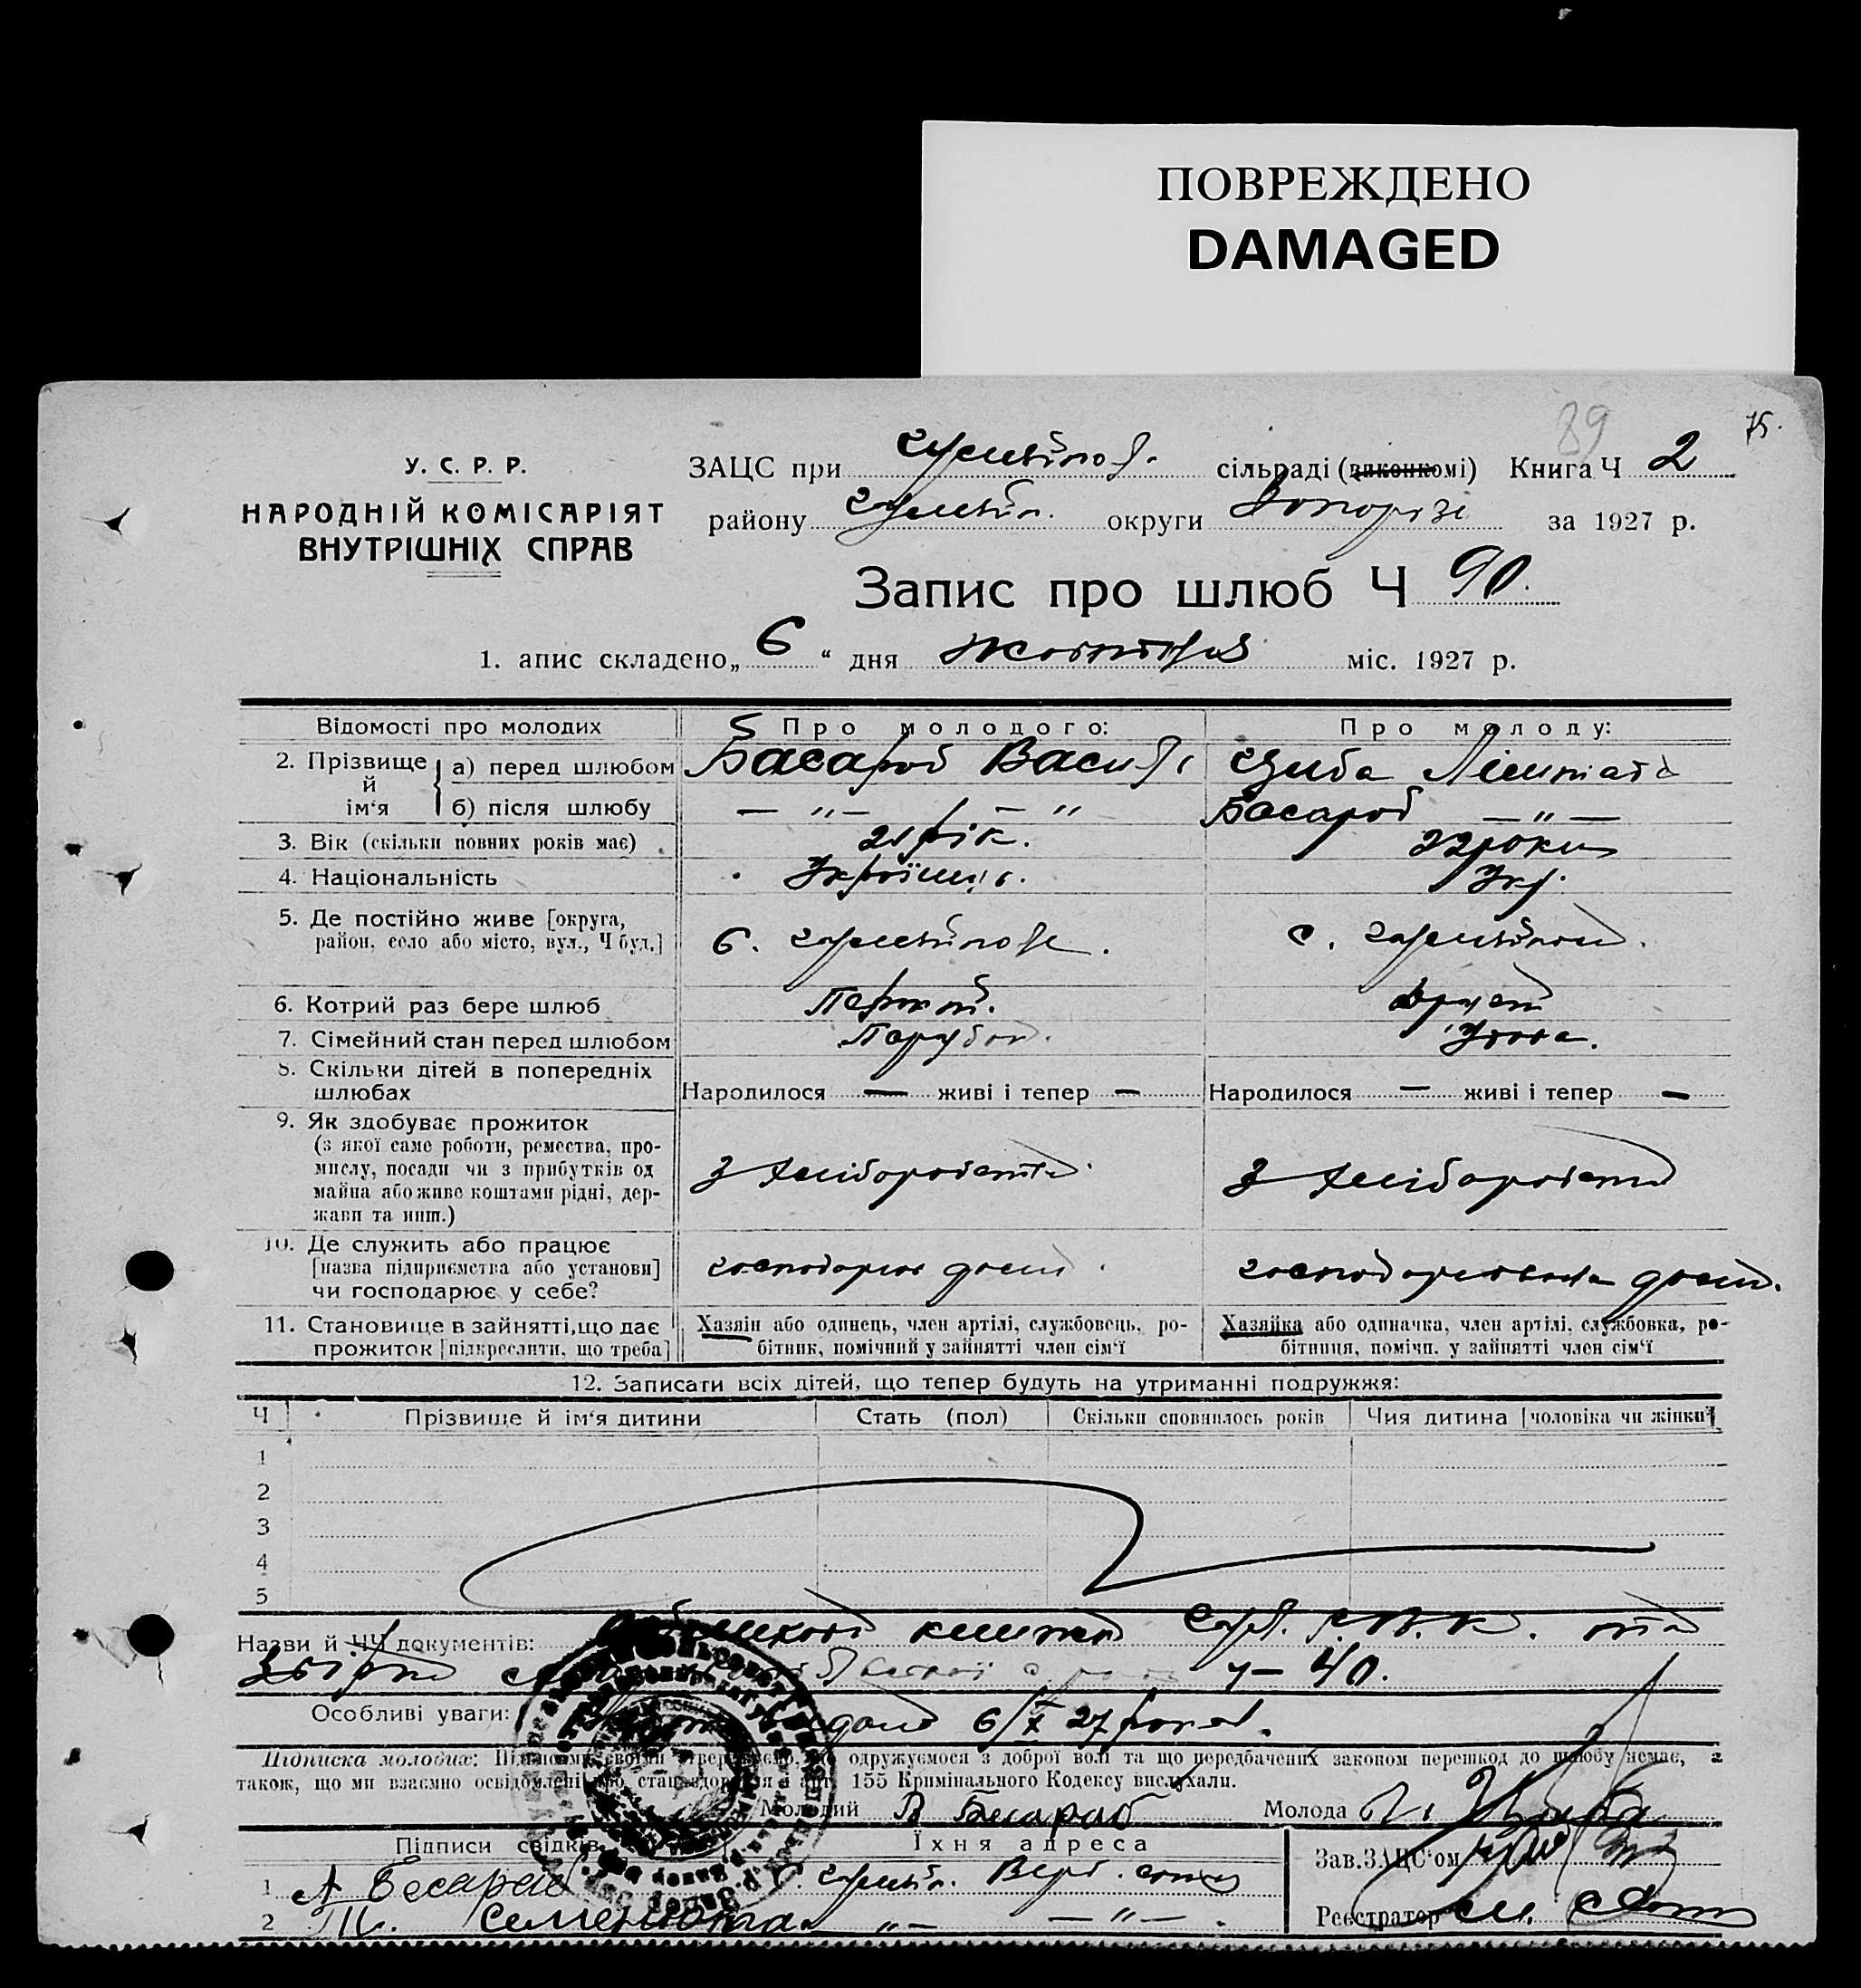 ПОВРЕЖДЕНО
DAMAGED
89 75.
У. С. Р. Р.
НАРОДНІЙ КОМІСАРІЯТ
ВНУТРІШНІХ СПРАВ
ЗАЦС при сільраді (виконкомі) Книга Ч 2
району округи Запорізь за 1927 р.
Запис про шлюб Ч 90.
1. апис складено „ 6 “ дня жовтня міс. 1927 р.
Відомості про молодих Про молодого: Про молоду:
2. Прізвище й ім‘я а) перед шлюбом Басараб Василь
б) після шлюбу — „ — — „ Басараб — „ —
3. Вік (скільки повних років має) 21 рік. 22 роки
4. Національність Українець. Укр.
5. Де постійно живе [округа,
район, село або місто, вул., Ч буд.] с.
6. Котрий раз бере шлюб Перший. другий
7. Сімейний стан перед шлюбом Парубок. Удова.
8. Скільки дітей в попередніх
шлюбах Народилося — живі і тепер — Народилося — живі і тепер —
9. Як здобуває прожиток
(з якої саме роботи, ремества, про-
мислу, посади чи з прибутків од
майна або живе коштами рідні, дер-
жави та инш.) З хліборобства З хліборобства
10. Де служить або працює
[назва підприємства або установи]
чи господарює у себе? господарює дома. дома.
11. Становище в зайнятті, що дає
прожиток [підкреслити, що треба]
Хазяін або одинець, член артілі, службовець, ро-
бітник, помічний у зайнятті член сім‘ї
Хазяйка або одиначка, член артілі, службовка, ро-
бітниця, помічн. у зайнятті член сім‘ї
12. Записати всіх дітей, що тепер будуть на утриманні подружжя:
Ч Прізвище й ім‘я дитини Стать (пол) Скільки сповнилось років Чия дитина [чоловіка чи жінки]
1
2
3
4
5
Назви й ЧЧ документів:
Ч — 40.
Особливі уваги: 6/X 27 року.
Підписка молодих: Підписами своїми стверджуємо, що одружуємося з доброї волі та що передбачених законом перешкод до шлюбу немає, а
також, що ми взаємно освідомлені про стан здоров‘я і арт. 155 Кримінального Кодексу вислухали.
Молодий В Басараб Молода
Підписи свідків Їхня адреса
Зав. ЗАЦС‘ом
1 А Басараб с.
2 П. Семенюта „ — — „ — .
Реєстратор